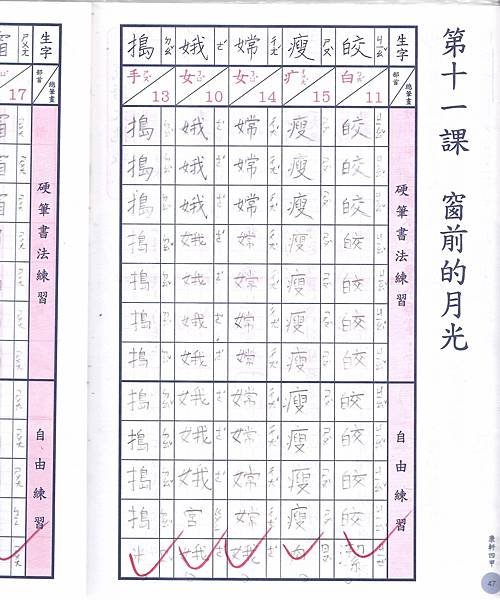 第十一課 窗前的月光
生字 部首 總筆畫
硬筆書法練習
自由練習
皎 ㄐㄧㄠˇ 白 11
皎
皎
皎
皎
皎
皎
皎
皎
皎
皎
皎
潔
瘦 ㄕㄡˋ 疒 15
瘦
瘦
瘦
瘦
瘦
瘦
瘦
瘦
瘦
瘦
瘦
嫦 ㄔㄤˊ 女 14
嫦
嫦
嫦
嫦
嫦
嫦
嫦
嫦
嫦
嫦
嫦
娥
娥 ㄜˊ 女 10
娥
娥
娥
娥
娥
娥
娥
娥
娥
娥
宮
娥
搗 ㄉㄠˇ 手 13
搗
搗
搗
搗
搗
搗
搗
搗
搗
搗
搗
康軒四甲
47
生字 部首 總筆畫
硬筆書法練習
自由練習
17